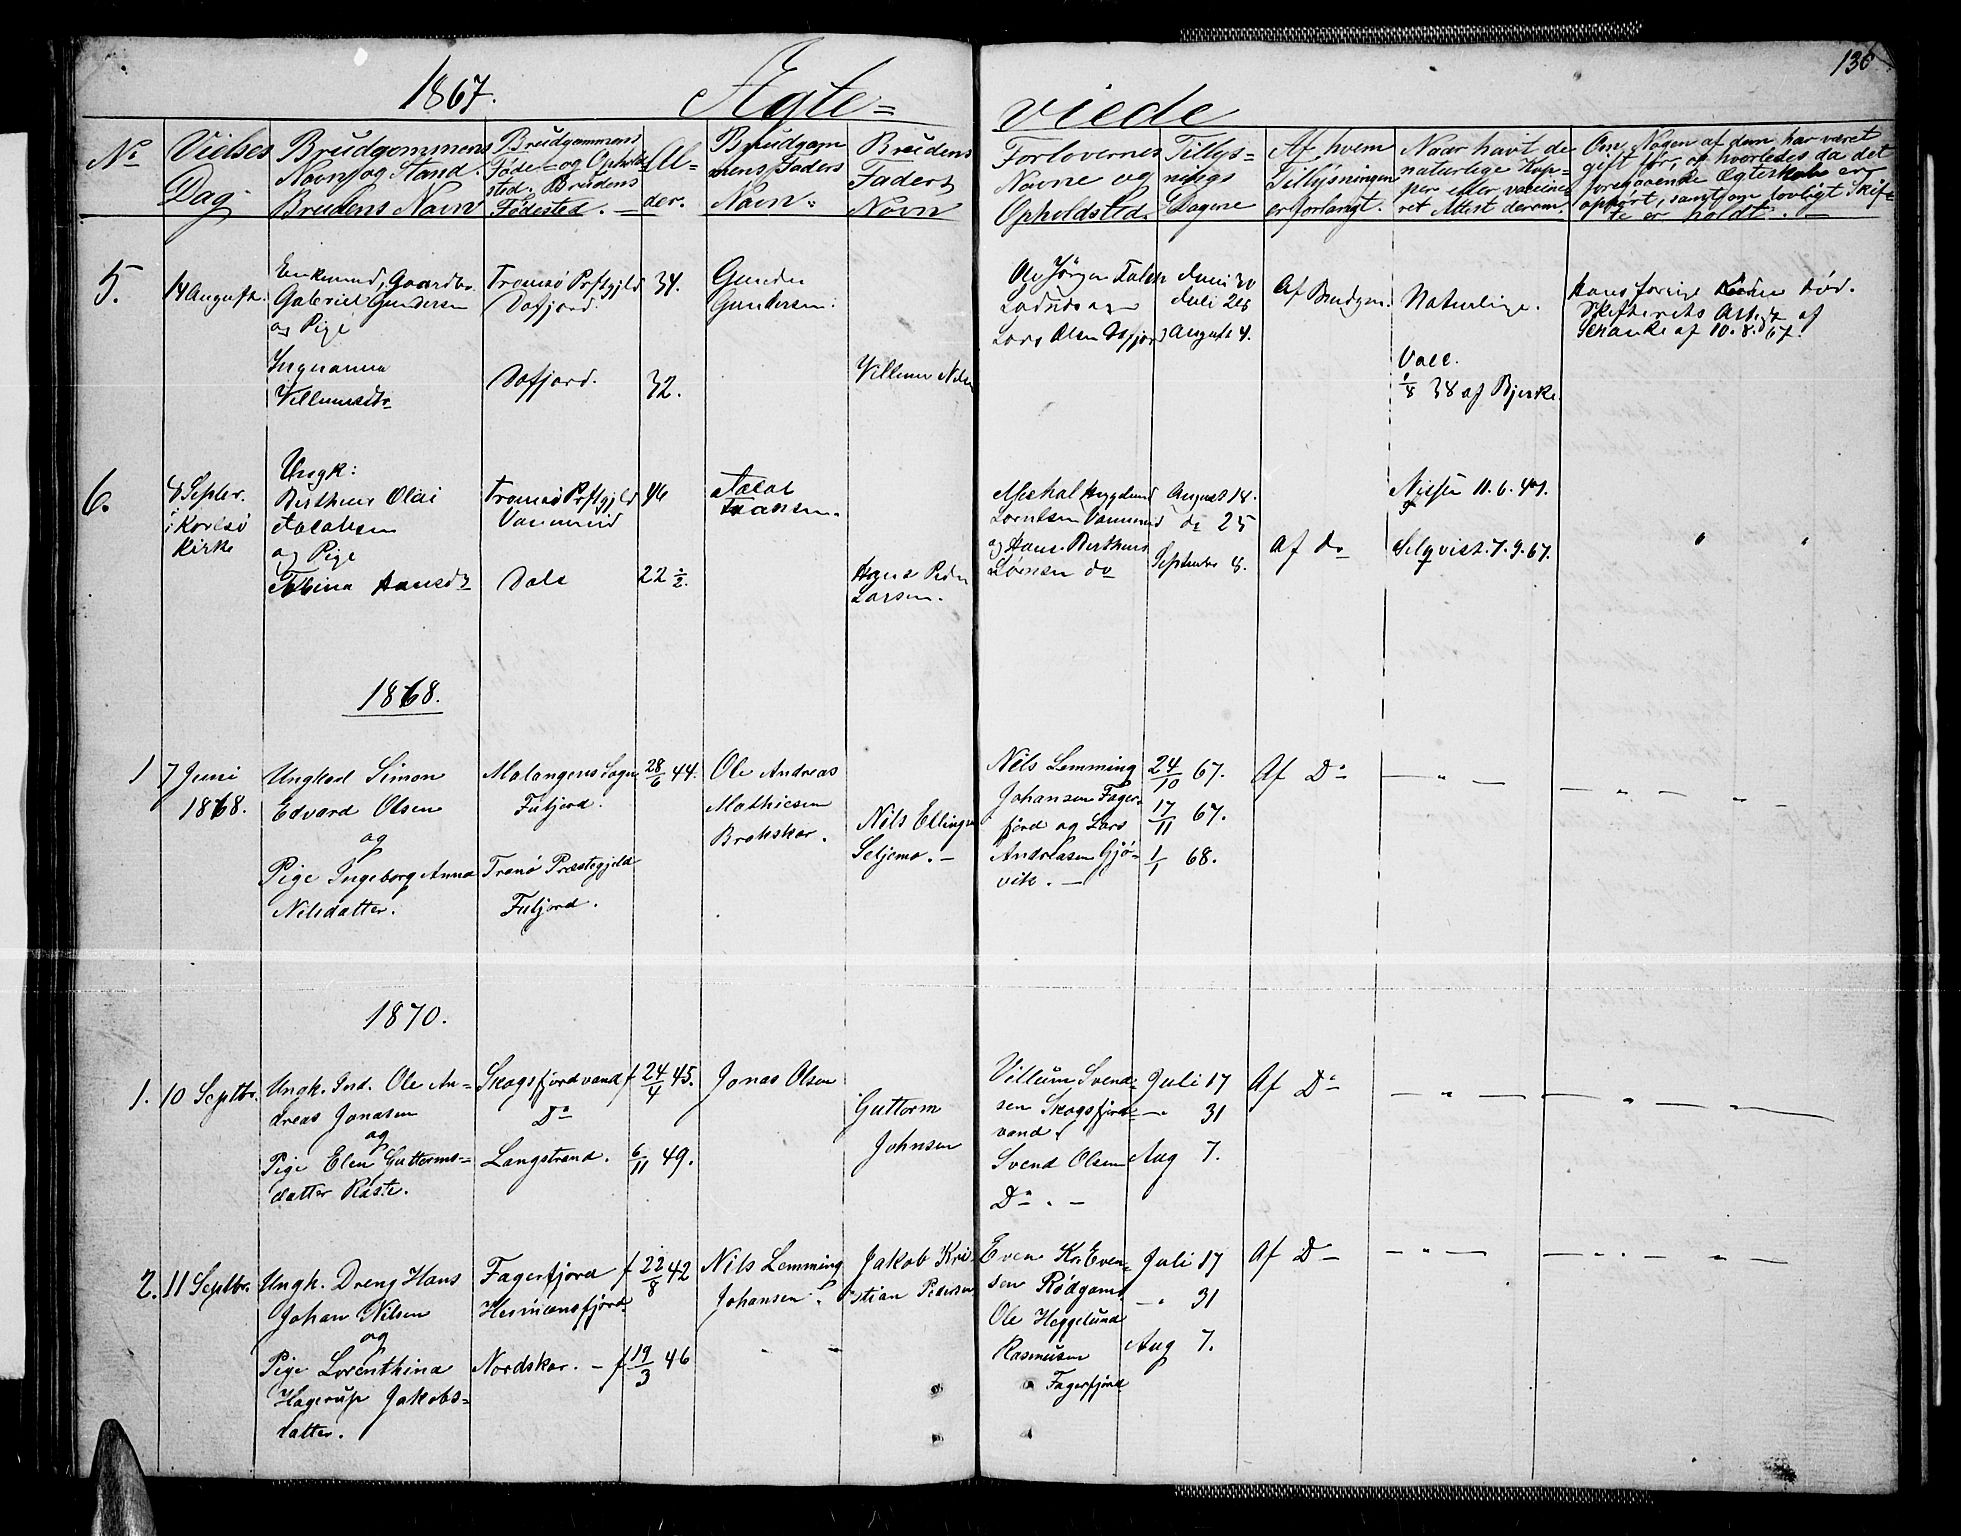 136
1867. Ægte= viede
No
Vielses Dag
Brudgommens Navn og Stand. Brudens Navn
Brudgommens Føde- og Opholdssted. Brudens Fødested.
Alder.
Brudgommens Faders Navn.
Brudens Faders Navn
Forlovernes Navne og Opholdsted.
Tillysnings Dagene
Af hvem Tillysningen er forlangt.
Naar havt de naturlige Kopper eller vaccineret. Attest derom.
Om Nogen af dem har været gift før, og hvorledes da det foregaaende Ægteskab er ophørt, samt om lovligt Skifte er holdt.
5.
14 August.
Enkemand, Gaardbr.
Gabriel Gundersen
og Pige
Villumsdr
Tromsø Prstgjld
Dafjord.
Dafjord.
34.
32.
Gunder
Gundersen.
Villum Nilsen
Ole Jørgen
Lars Olsen
Juni 30
Juli 28
August 4.
Af Brudgom.
Naturlige.
Vacc.
1/8 38 af Bjerke.
Hans forrige død.
Skifterets Attest af
10.8.67.
6.
8 Septbr.
i Karlsø
Kirke
Ungk:
Bertheus Olai
Jacobsen
og Pige
Hansdr
Tromsø Prstgjld
Vannund
46
22 1/2.
Jacob
Hans Peder
Larsen.
Lorntsen Vannund
og Hans Bertheus
do
August 14.
do 25
September 8.
Af do
11.6.
Selqvist. 7.9.67.
"
"
1868.
1
7 Juni
1868.
Ungkarl Simon
Edvard Olsen
og
Pige Ingeborg Anna
Nilsdatter.
Malangens Sogn
Tranø Præstegjeld
28/6 44.
Ole Andreas
Mathiesen
Nils Ellingsen
Seljemo.
Nils Lemming
Johansen Fager-
fjord og Lars
Andreasen Gjø-
vik.
24/10 67.
17/11 67.
1/1 68.
Af Do
1870.
1.
10 Septbr.
Ungk. Ind. Ole An-
dreas Jonasen
og
Pige Elen Guttorms-
datter Raste.
Skogsfjordvand
Do
Langstrand.
f 24/4 45.
6/11 49.
Jonas Olsen
Guttorm
Johnsen
Villum Svend-
sen Skogsfjord-
vand.
Svend Olsen
Do
Juli 17
" 31
Aug 7.
Af Do
2.
11 Septbr.
Ungk. Dreng Hans
Johan Nilsen
og
Pige Lorenthina
Hagerup Jakobs=
datter.
Fagerfjord
Hessmansfjord
Nordskar.
f 22/8 42
f 19/3 46
Nils Lemming
Johansen.
Jakob Kri-
stian Pedersen
Even Kr Even-
sen Rødgam.
Ole Heggelund
Rasmusen
Fagerfjord
Juli 17
" 31
Aug 7.
Af Do